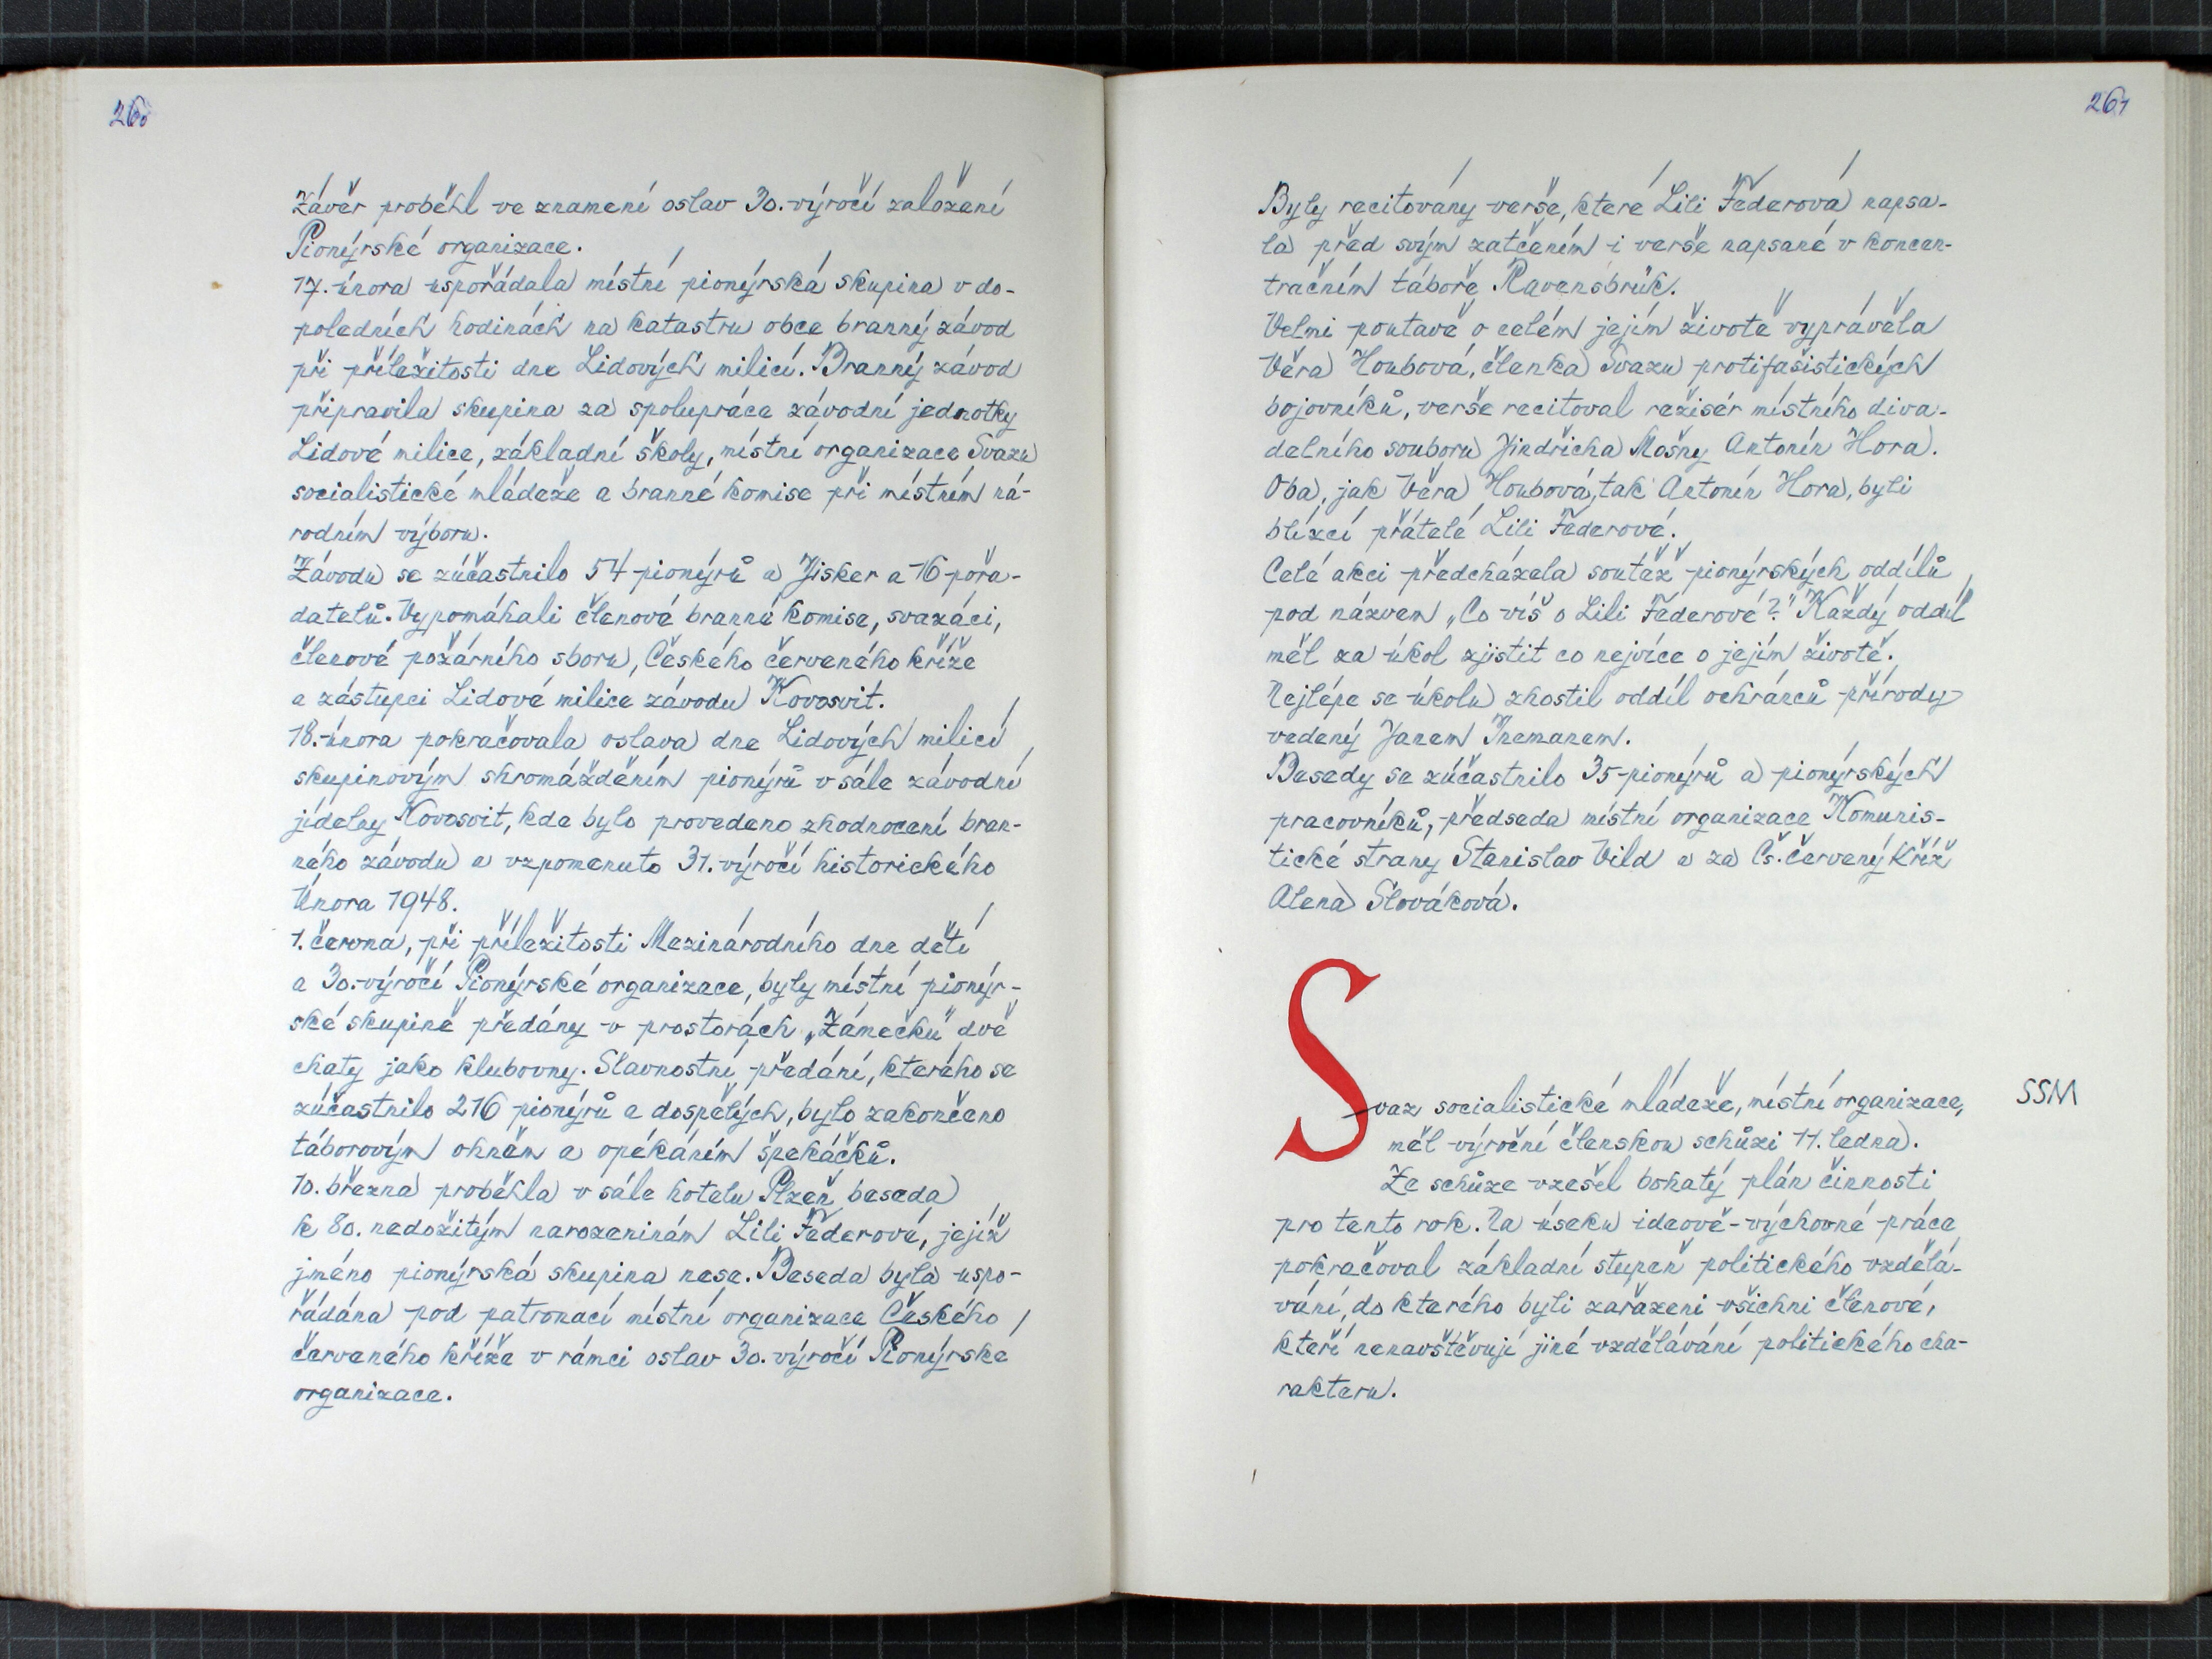 260
Závěr proběhl ve znamení oslav 30. výročí založení
Pionýrské organizace.
17. února uspořádala místní pionýrská skupina v do-
poledních hodinách na katastru obce branný závod
při příležitosti dne Lidových milicí. Branný závod
připravila skupina za spolupráce závodní jednotky
Lidové milice, základní školy, místní organizace Svazu
socialistické mládeže a branné komise při místním ná-
rodním výboru.
Závodu se zúčastnilo 54 pionýrů a Jisker a 16 pořa-
datelů. Vypomáhali členové branné komise, svazáci,
členové požárního sboru, Českého červeného kříže
a zástupci Lidové milice závodu Kovosvit.
18. února pokračovala oslava dne Lidových milicí
skupinovým shromážděním pionýrů v sále závodní
jídelny Kovosvit, kde bylo provedeno zhodnocení bran-
ného závodu a vzpomenuto 31. výročí historického
Února 1948.
1. června, při příležitosti Mezinárodního dne dětí
a 30. výročí Pionýrské organizace, byly místní pionýr-
ské skupině předány v prostorách „Zámečku" dvě
chaty jako klubovny. Slavnostní předání, kterého se
zúčastnilo 216 pionýrů a dospělých, bylo zakončeno
táborovým ohněm a opékáním špekáčků.
10. března proběhla v sále hotelu Plzeň beseda
k 80. nedožitým narozeninám Lili Féderové, jejíž
jméno pionýrská skupina nese. Beseda byla uspo-
řádána pod patronací místní organizace Českého
červeného kříže v rámci oslav 30. výročí Pionýrské
organizace.
261
Byly recitovány verše, které Lili Féderová napsa-
la před svým zatčením i verše napsané v koncen-
tračním táboře Ravensbrük.
Velmi poutavě o celém jejím životě vyprávěla
Věra Houbová, členka Svazu protifašistických
bojovníků, verše recitoval režisér místního diva-
delního souboru Jindřicha Mošny Antonín Hora.
Oba, jak Věra Houbová, tak Antonín Hora, byli
blízcí přátelé Lili Féderové.
Celé akci předcházela soutěž pionýrských oddílů
pod názvem „Co víš o Lili Féderové?" Každý oddíl
měl za úkol zjistit co nejvíce o jejím životě.
Nejlépe se úkolu zhostil oddíl ochránců přírody
vedený Janem
Besedy se zúčastnilo 35 pionýrů a pionýrských
pracovníků, předseda místní organizace Komunis-
tické strany Stanislav Vild a za Čs. červený kříž
Alena Slováková.
Svaz socialistické mládeže, místní organizace,
SSM
měl výroční členskou schůzi 11. ledna.
Ze schůze vzešel bohatý plán činnosti
pro tento rok. Na úseku ideově-výchovné práce
pokračoval základní stupeň politického vzdělá-
vání, do kterého byli zařazeni všichni členové,
kteří nenavštěvují jiné vzdělávání politického cha-
rakteru.